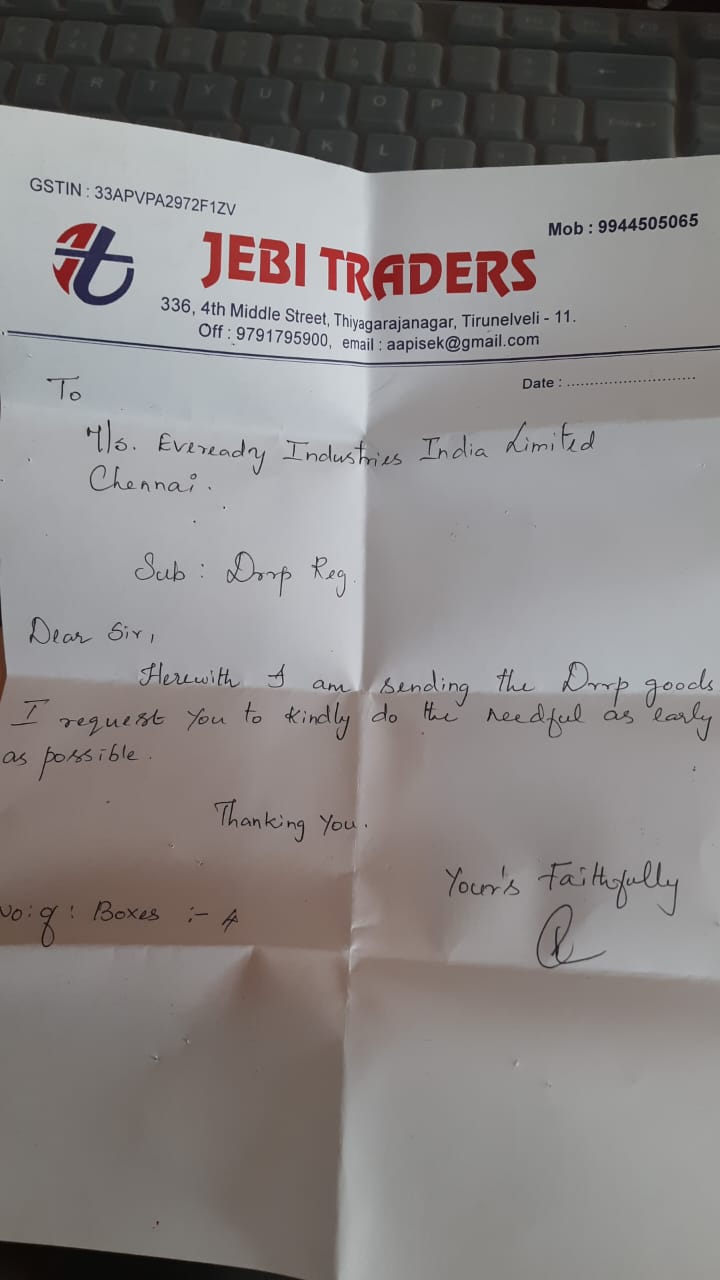 GSTIN : 33APVPA2972F1ZV
Mob : 9944505065
JEBI TRADERS
336, 4th Middle Street, Thiyagarajanagar, Tirunelveli - 11.
Off : 9791795900, email : aapisek@gmail.com
Date : ............................
To
M/s. Eveready Industries India Limited
Chennai.
Sub : Drrp Reg.
Dear Sir,
Herewith I am sending the Drrp goods
I request you to kindly do the needful as early
as possible.
Thanking You.
Your's Faithfully
No: of : Boxes :- 4
E R T Y U I O P
K L